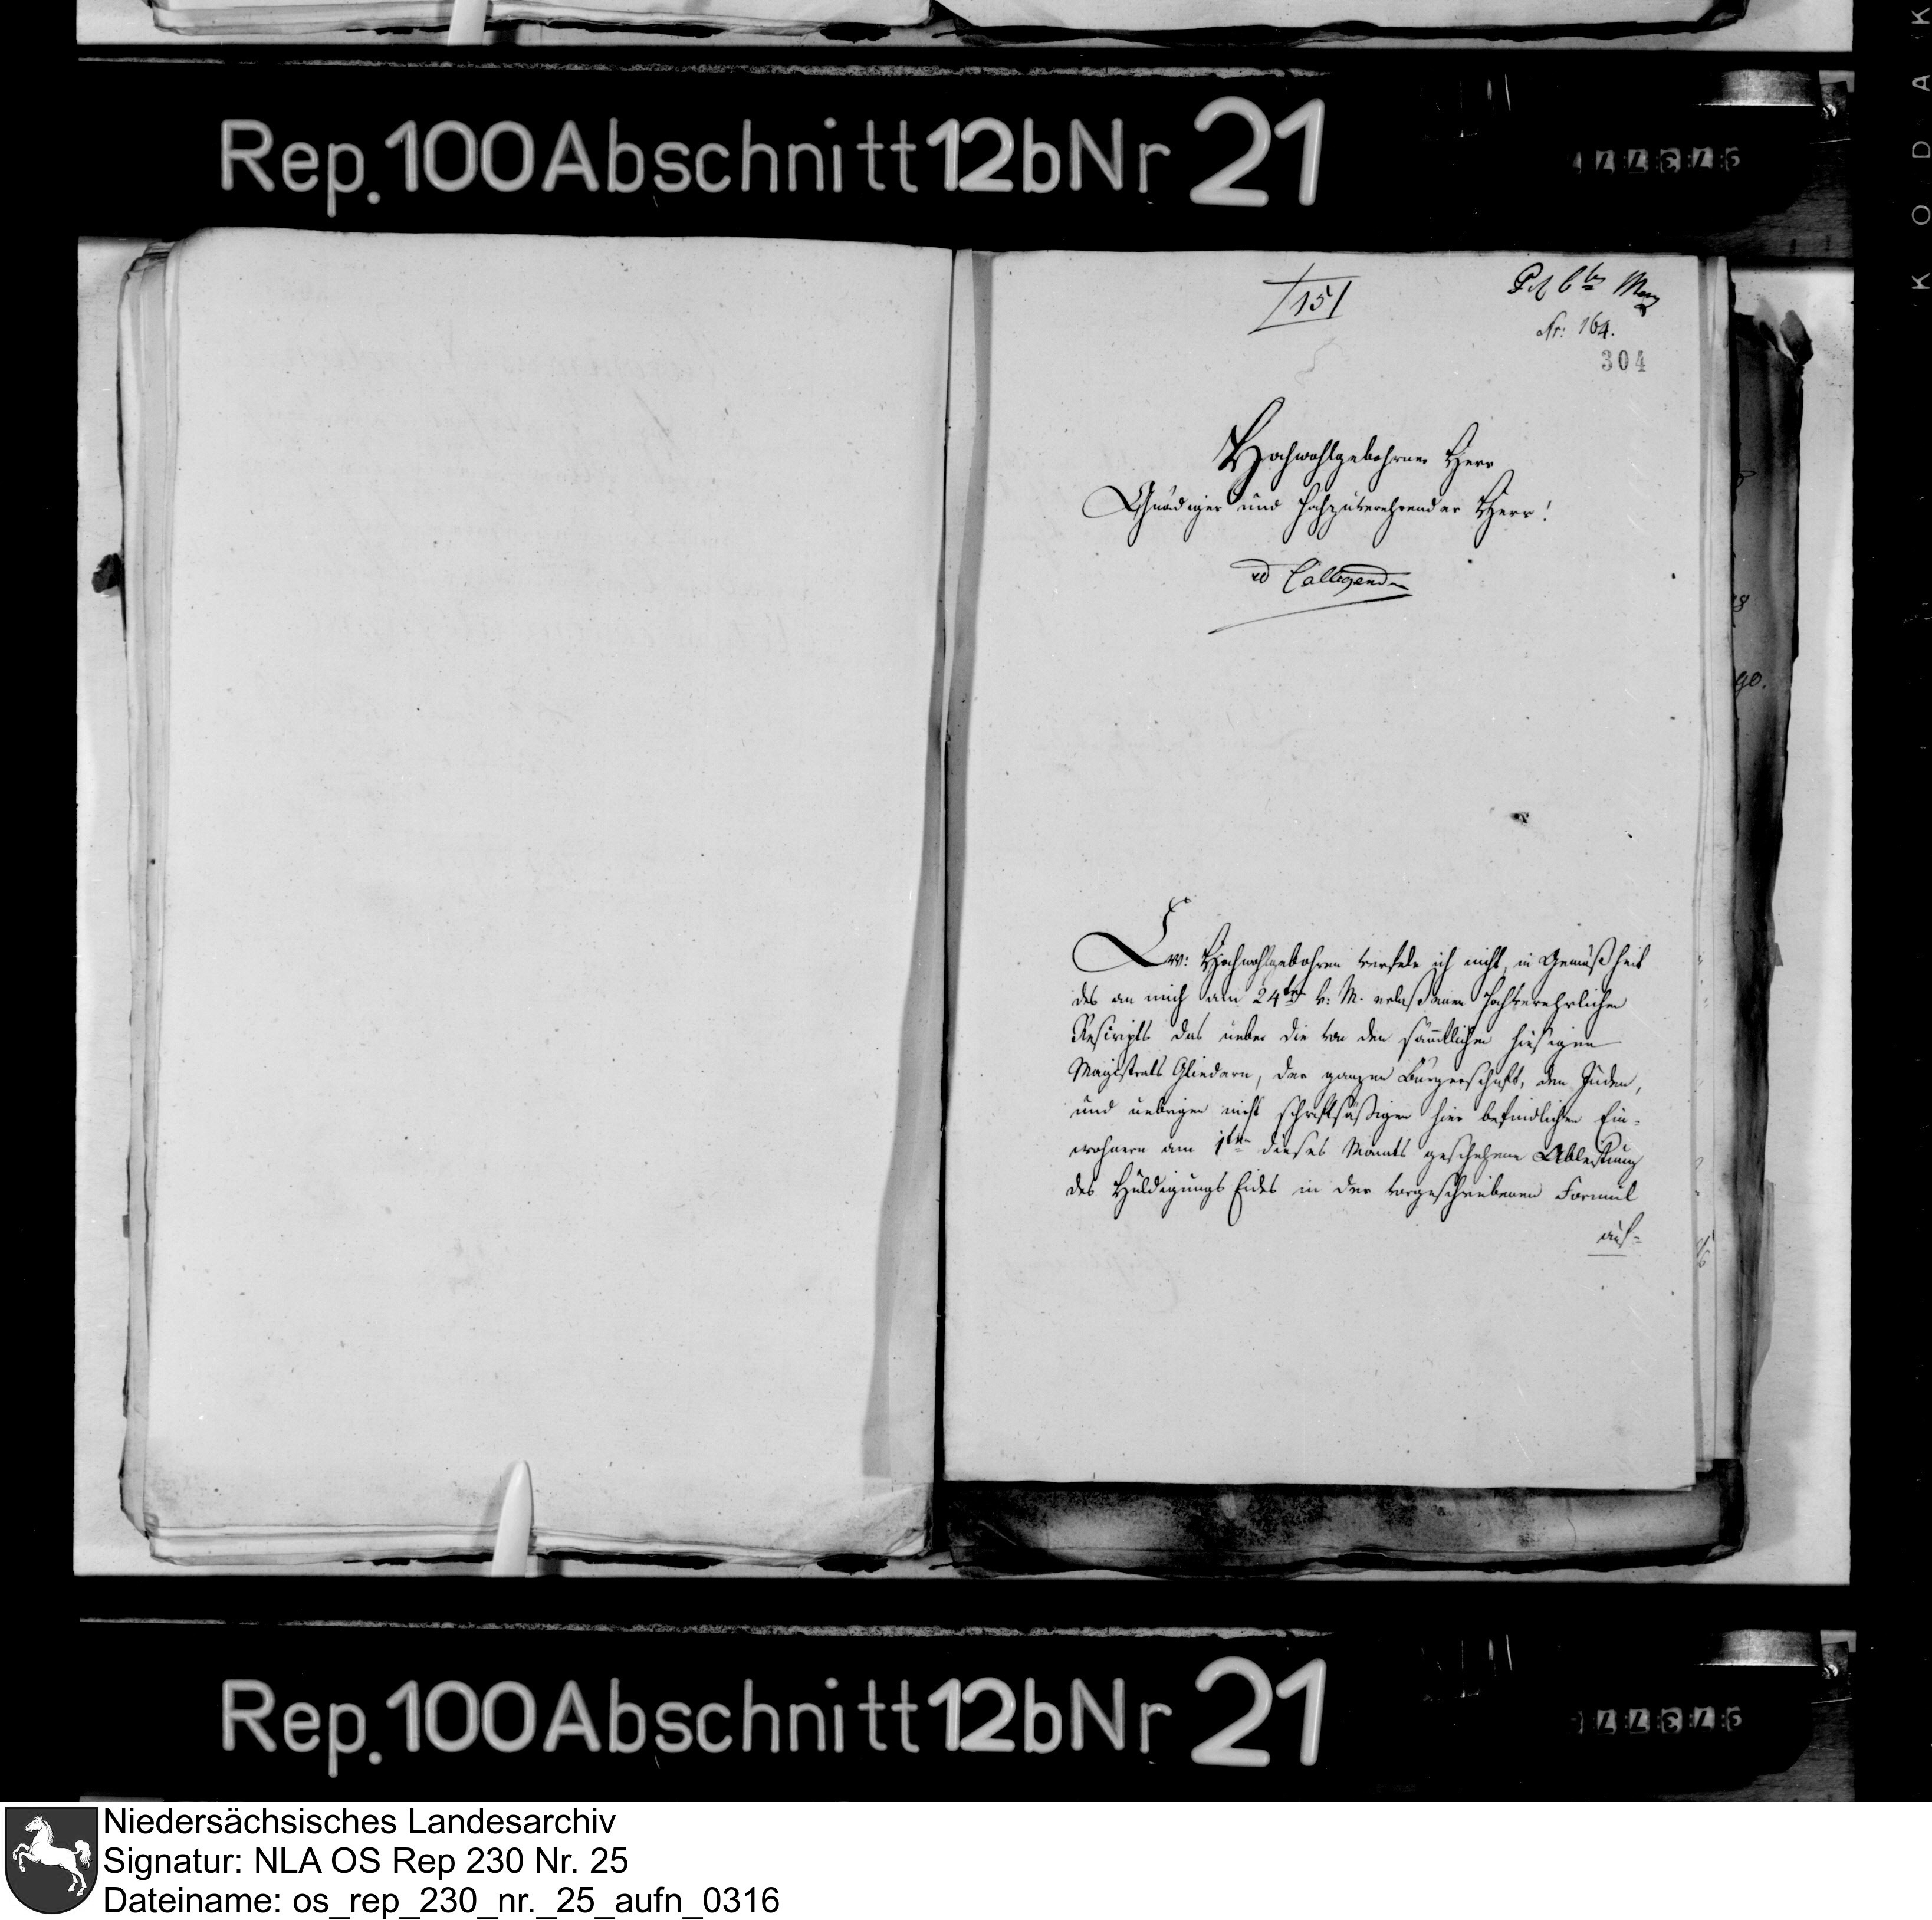 KODAK
Rep. 100 Abschnitt 12b Nr 21
151
Nr: 164.
304
Hochwohlgebohrner Herr
Gnädiger und hochzuverehrender Herr!
ad Colligend
Ew: Hochwohlgebohren verfele ich nicht, in Gemäßheit
des an mich am 24ten v: M. erlaßenen hochverehrlichen
Rescripts das ueber die von den sämtlichen hiesigen
Magistrats Gliedern, der ganzen Bürgerschaft, den Juden,
und uebrigen nicht schriftsäßigen hier befindlichen Ein-
wohnern am 1ten dieses Monats geschehene Ableistung
des Huldigungs Eides in der vorgeschriebenen Formul
auf-
Rep. 100 Abschnitt 12b Nr 21
Niedersächsisches Landesarchiv
Signatur: NLA OS Rep 230 Nr. 25
Dateiname: os_rep_230_nr._25_aufn_0316